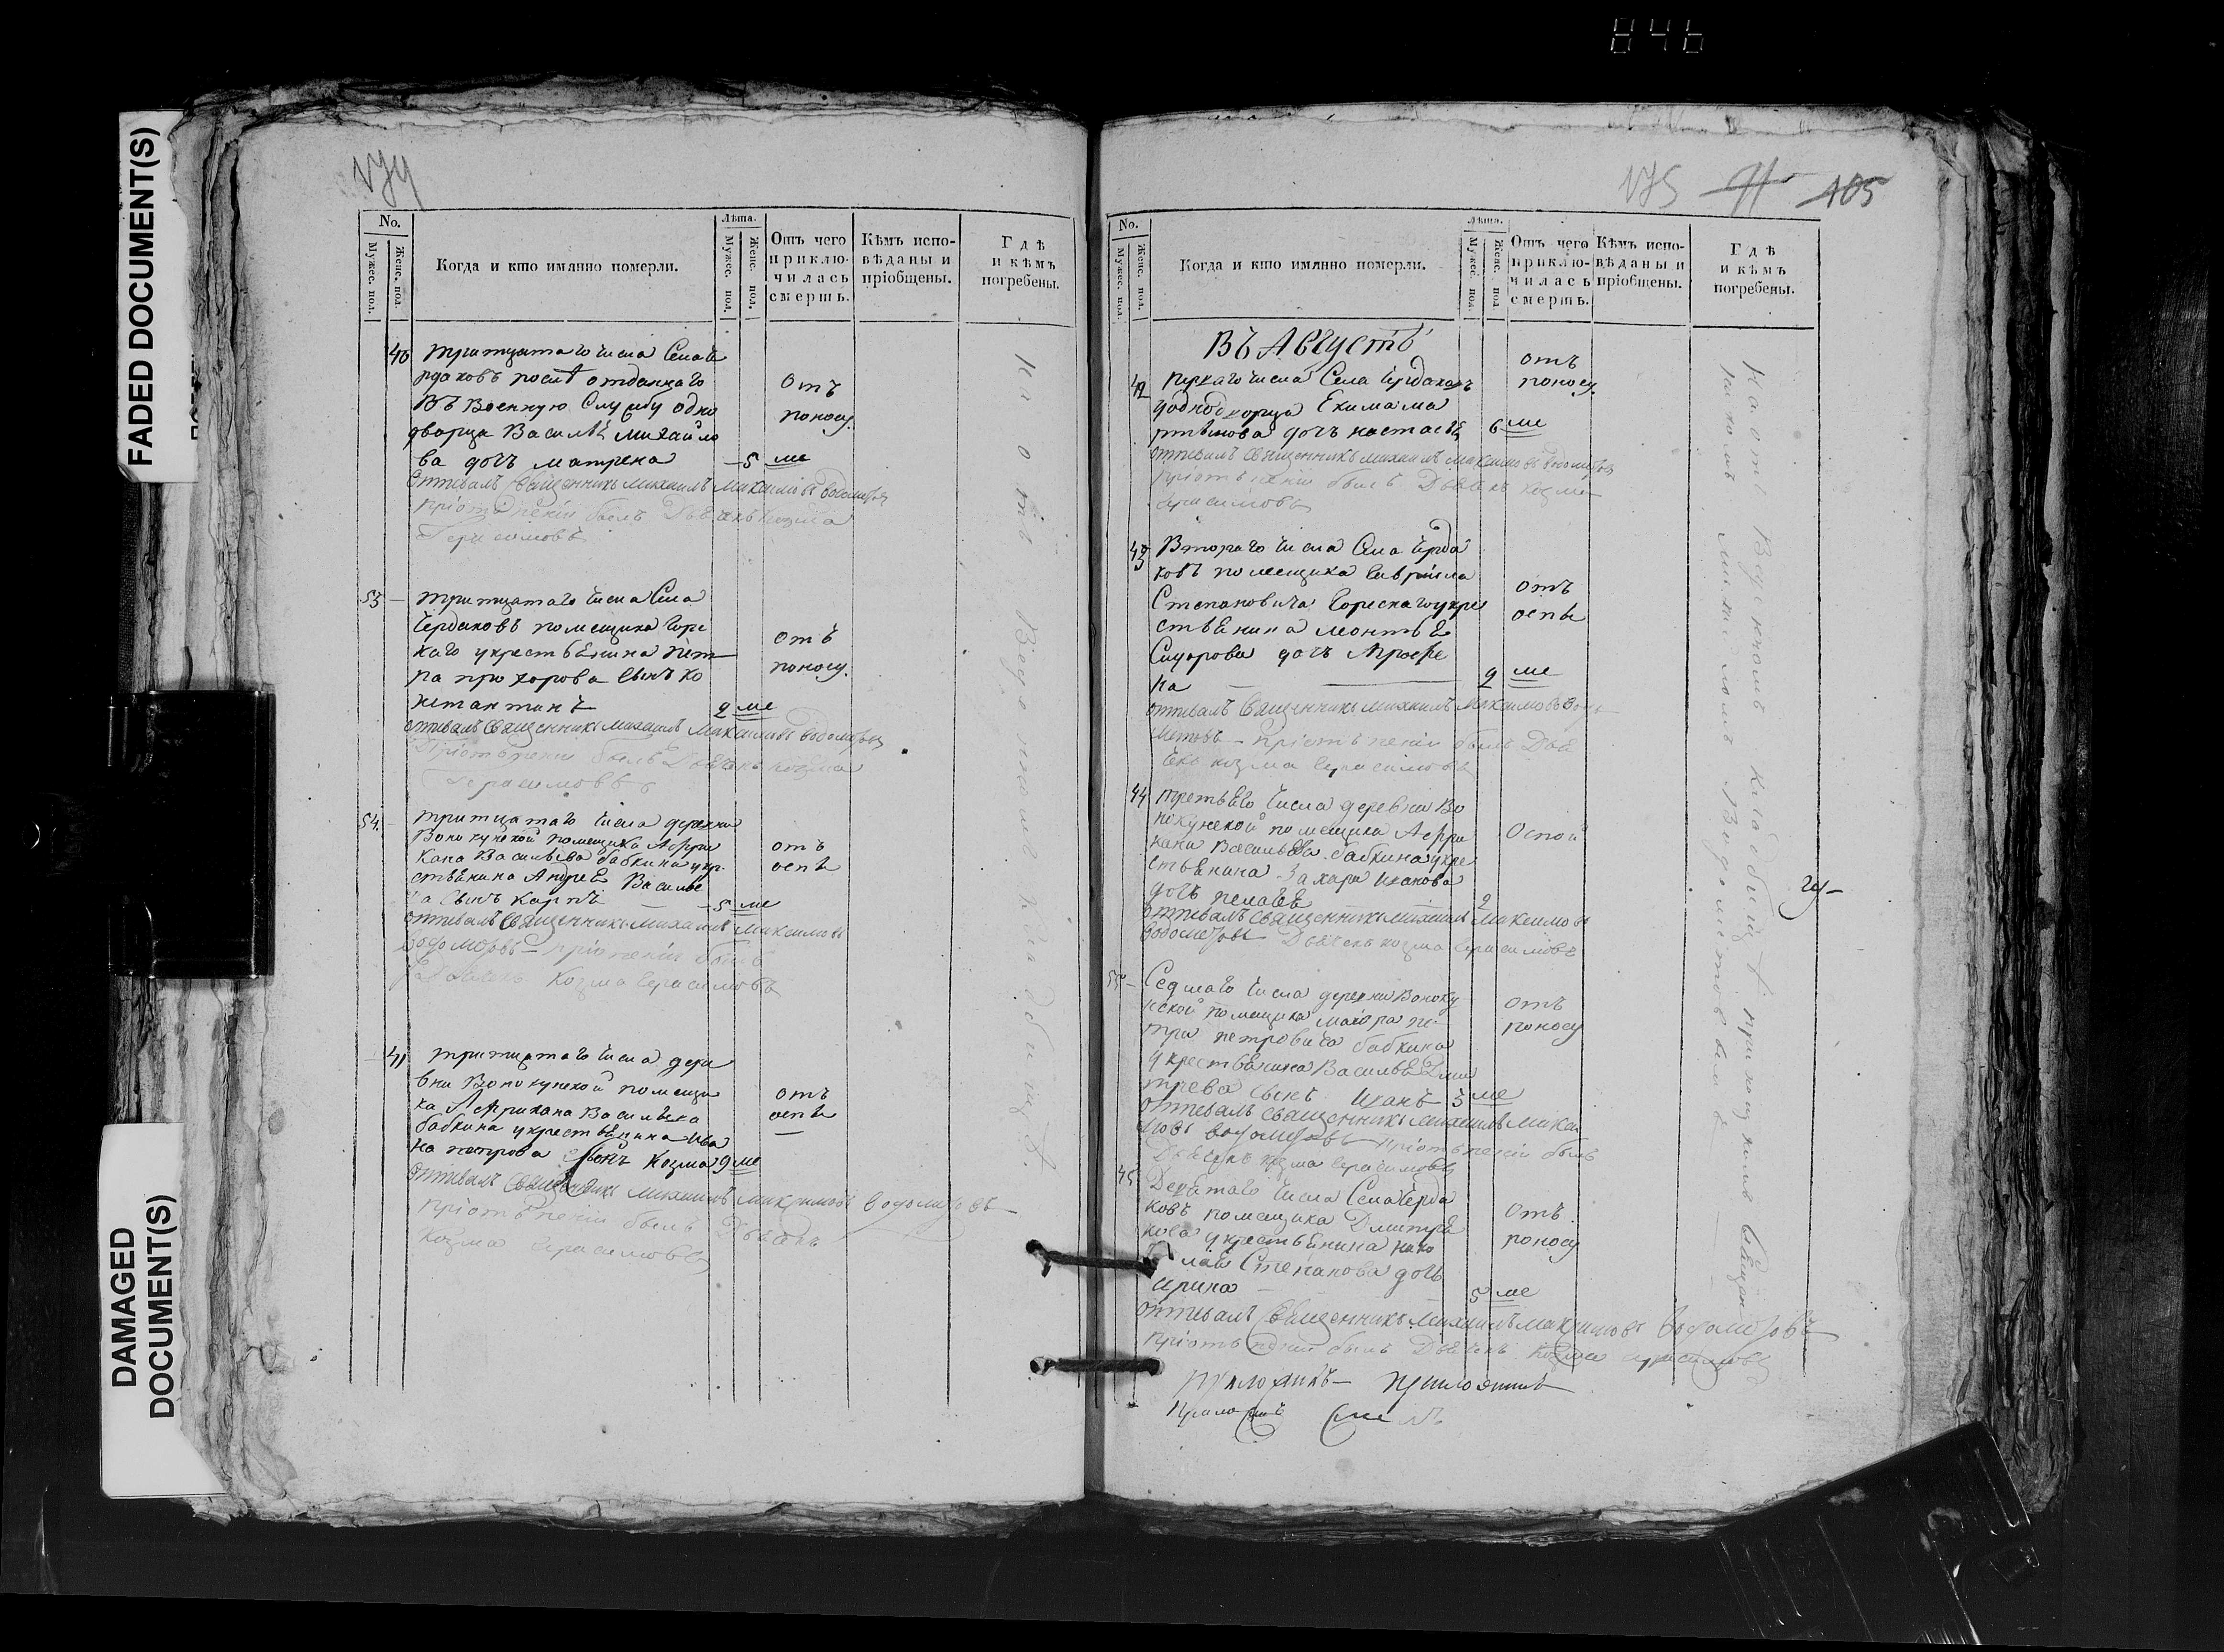 846
FADED DOCUMENT(S)
DAMAGED DOCUMENT(S)
174
No.
Мужес. пол.
Женс. пол.
Когда и кто имянно померли.
Лѣта.
Мужес. пол.
Женс. пол.
Отъ чего приклю-чилась смерть.
Кѣмъ испо-вѣданы и пріобщены.
Гдѣ и кѣмъ погребены.
40 тритцатаго числа Села Че
рдаковъ послѣ отданнаго
въ военную Службу одно
дворца Василья михайло
ва дочь матрена 5 ме
отъ
поносу.
отпевалъ Священникъ михаилъ Максимовъ Водомеровъ
приотпѣнiи былъ Дьячекъ козма
Герасимовъ
53 тритцатаго числа Села
Чердаковъ помещика Горс
каго укрестьянина Пет
ра прохорова сынъ ко
нстантинъ 2 ме
отъ
поносу.
отпевалъ Священникъ михаилъ Максимовъ Водомеровъ
Приотпѣнiи былъ Дьячекъ козма
Герасимовъ
54. тритцатаго числа деревни
Вонокунской помещика Афри
кана Васильева бабкина укр
стьянина Андрея Василье
ва сынъ карпъ 5 ме
отъ
оспы
отпевалъ Священникъ михаилъ Максимовъ
Водомеровъ приотпѣнiи былъ
Дьячекъ Козма Герасимовъ
41 тритцатаго числа дере
вни Вонокунской помещи
ка Африкана Васильева
бабкина укрестьянина Ива
на петрова сынъ козма 9 ме
отъ
оспы
отпевалъ Священникъ михаилъ максимовъ Водомеровъ
Приотпѣнiи былъ Дьячекъ
Козма Герасимовъ
На отведенномъ кладбищѣ.
175 105
No.
Мужес. пол.
Женс. пол.
Когда и кто имянно померли.
Лѣта.
Мужес. пол.
Женс. пол.
Отъ чего приклю-чилась смерть.
Кѣмъ испо-вѣданы и пріобщены.
Гдѣ и кѣмъ погребены.
Въ Августѣ
42 перваго числа Села Чердаковъ
уоднодворца Екима ма
ртынова дочь настасья 6 ме
отъ
поносу.
отпевалъ Священникъ михаилъ максимовъ Водомеровъ
приотпѣнiи былъ Дьячекъ козма
Герасимовъ
43 Втораго числа Села Черда
ковъ помещика Гаврила
Степановича Горскаго укре
стьянина леонтья
Сидорова дочь Мрофе
на 9 ме
отъ
оспы
отпевалъ Священникъ михаилъ Максимовъ Водо
меровъ приотпѣнiи былъ Дья
чекъ козма Герасимовъ
44 третьяго числа деревни Во
нокунской помещика Афри
кана Васильева бабкина укре
стьянина Захара Иванова
дочь пелагея 2
Оспой
отпевалъ Священникъ михаилъ Максимовъ
Водомеровъ Дьячекъ козма Герасимовъ
55 Седмаго числа деревни Воноку
нской помещика маiора пе
тра петровича бабкина
укрестьянина Василья Дми
трева сынъ Иванъ 3 ме
отъ
поносу
отпевалъ Священникъ михаилъ Макси
мовъ Водомеровъ приотпѣнiи былъ
Дьячекъ козма Герасимовъ
45 Девятаго числа Села Черда
ковъ помещика Дмитрея
укрестьянина нико
лая Степанова дочь
ирина 5 ме
отъ
поносу
отпевалъ Священникъ михаилъ максимовъ Водомеровъ
приотпѣнiи былъ Дьячекъ козма Герасимовъ
На отведенномъ кладбищѣ приходскимъ Священ
никомъ михаиломъ Водомеровымъ
24